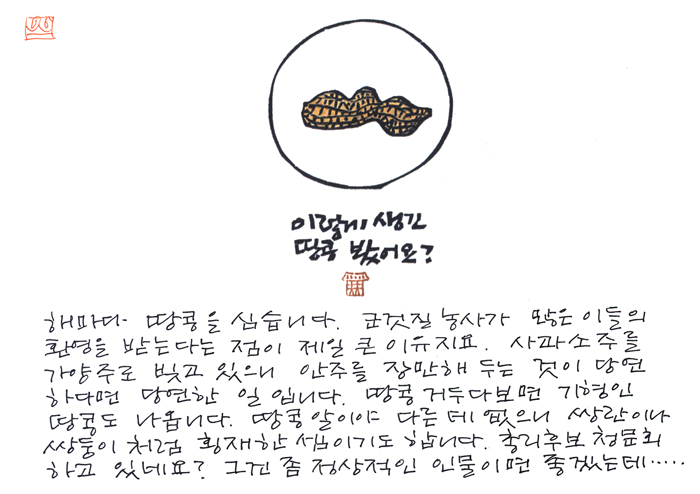 이렇게 생긴
땅콩 봤어요?
해마다 땅콩을 심습니다. 군것질 농사가 많은 이들의
환영을 받는다는 점이 제일 큰 이유지요. 사파소주를
가양주로 빚고 있으니 안주를 장만해 두는 것이 당연
하다면 당연한 일입니다. 땅콩 거두다보면 기형인
땅콩도 나옵니다. 땅콩알이야 다른 데 없으니 쌍란이나
쌍둥이처럼 횡재한 셈이기도 합니다. 총리후보 청문회
하고 있네요? 그건 좀 정상적인 인물이면 좋겠는데.....